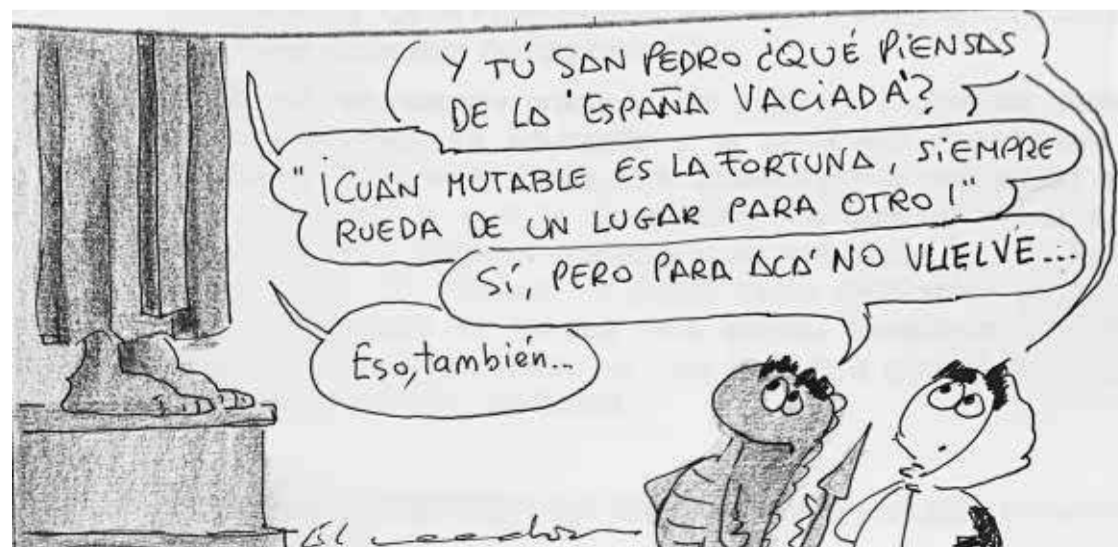 Y TÚ SAN PEDRO ¿QUÉ PIENSAS
DE LA 'ESPAÑA VACIADA'?
"¡CUÁN MUTABLE ES LA FORTUNA, SIEMPRE
RUEDA DE UN LUGAR PARA OTRO!"
SÍ, PERO PARA ACÁ NO VUELVE...
Eso, también...
El